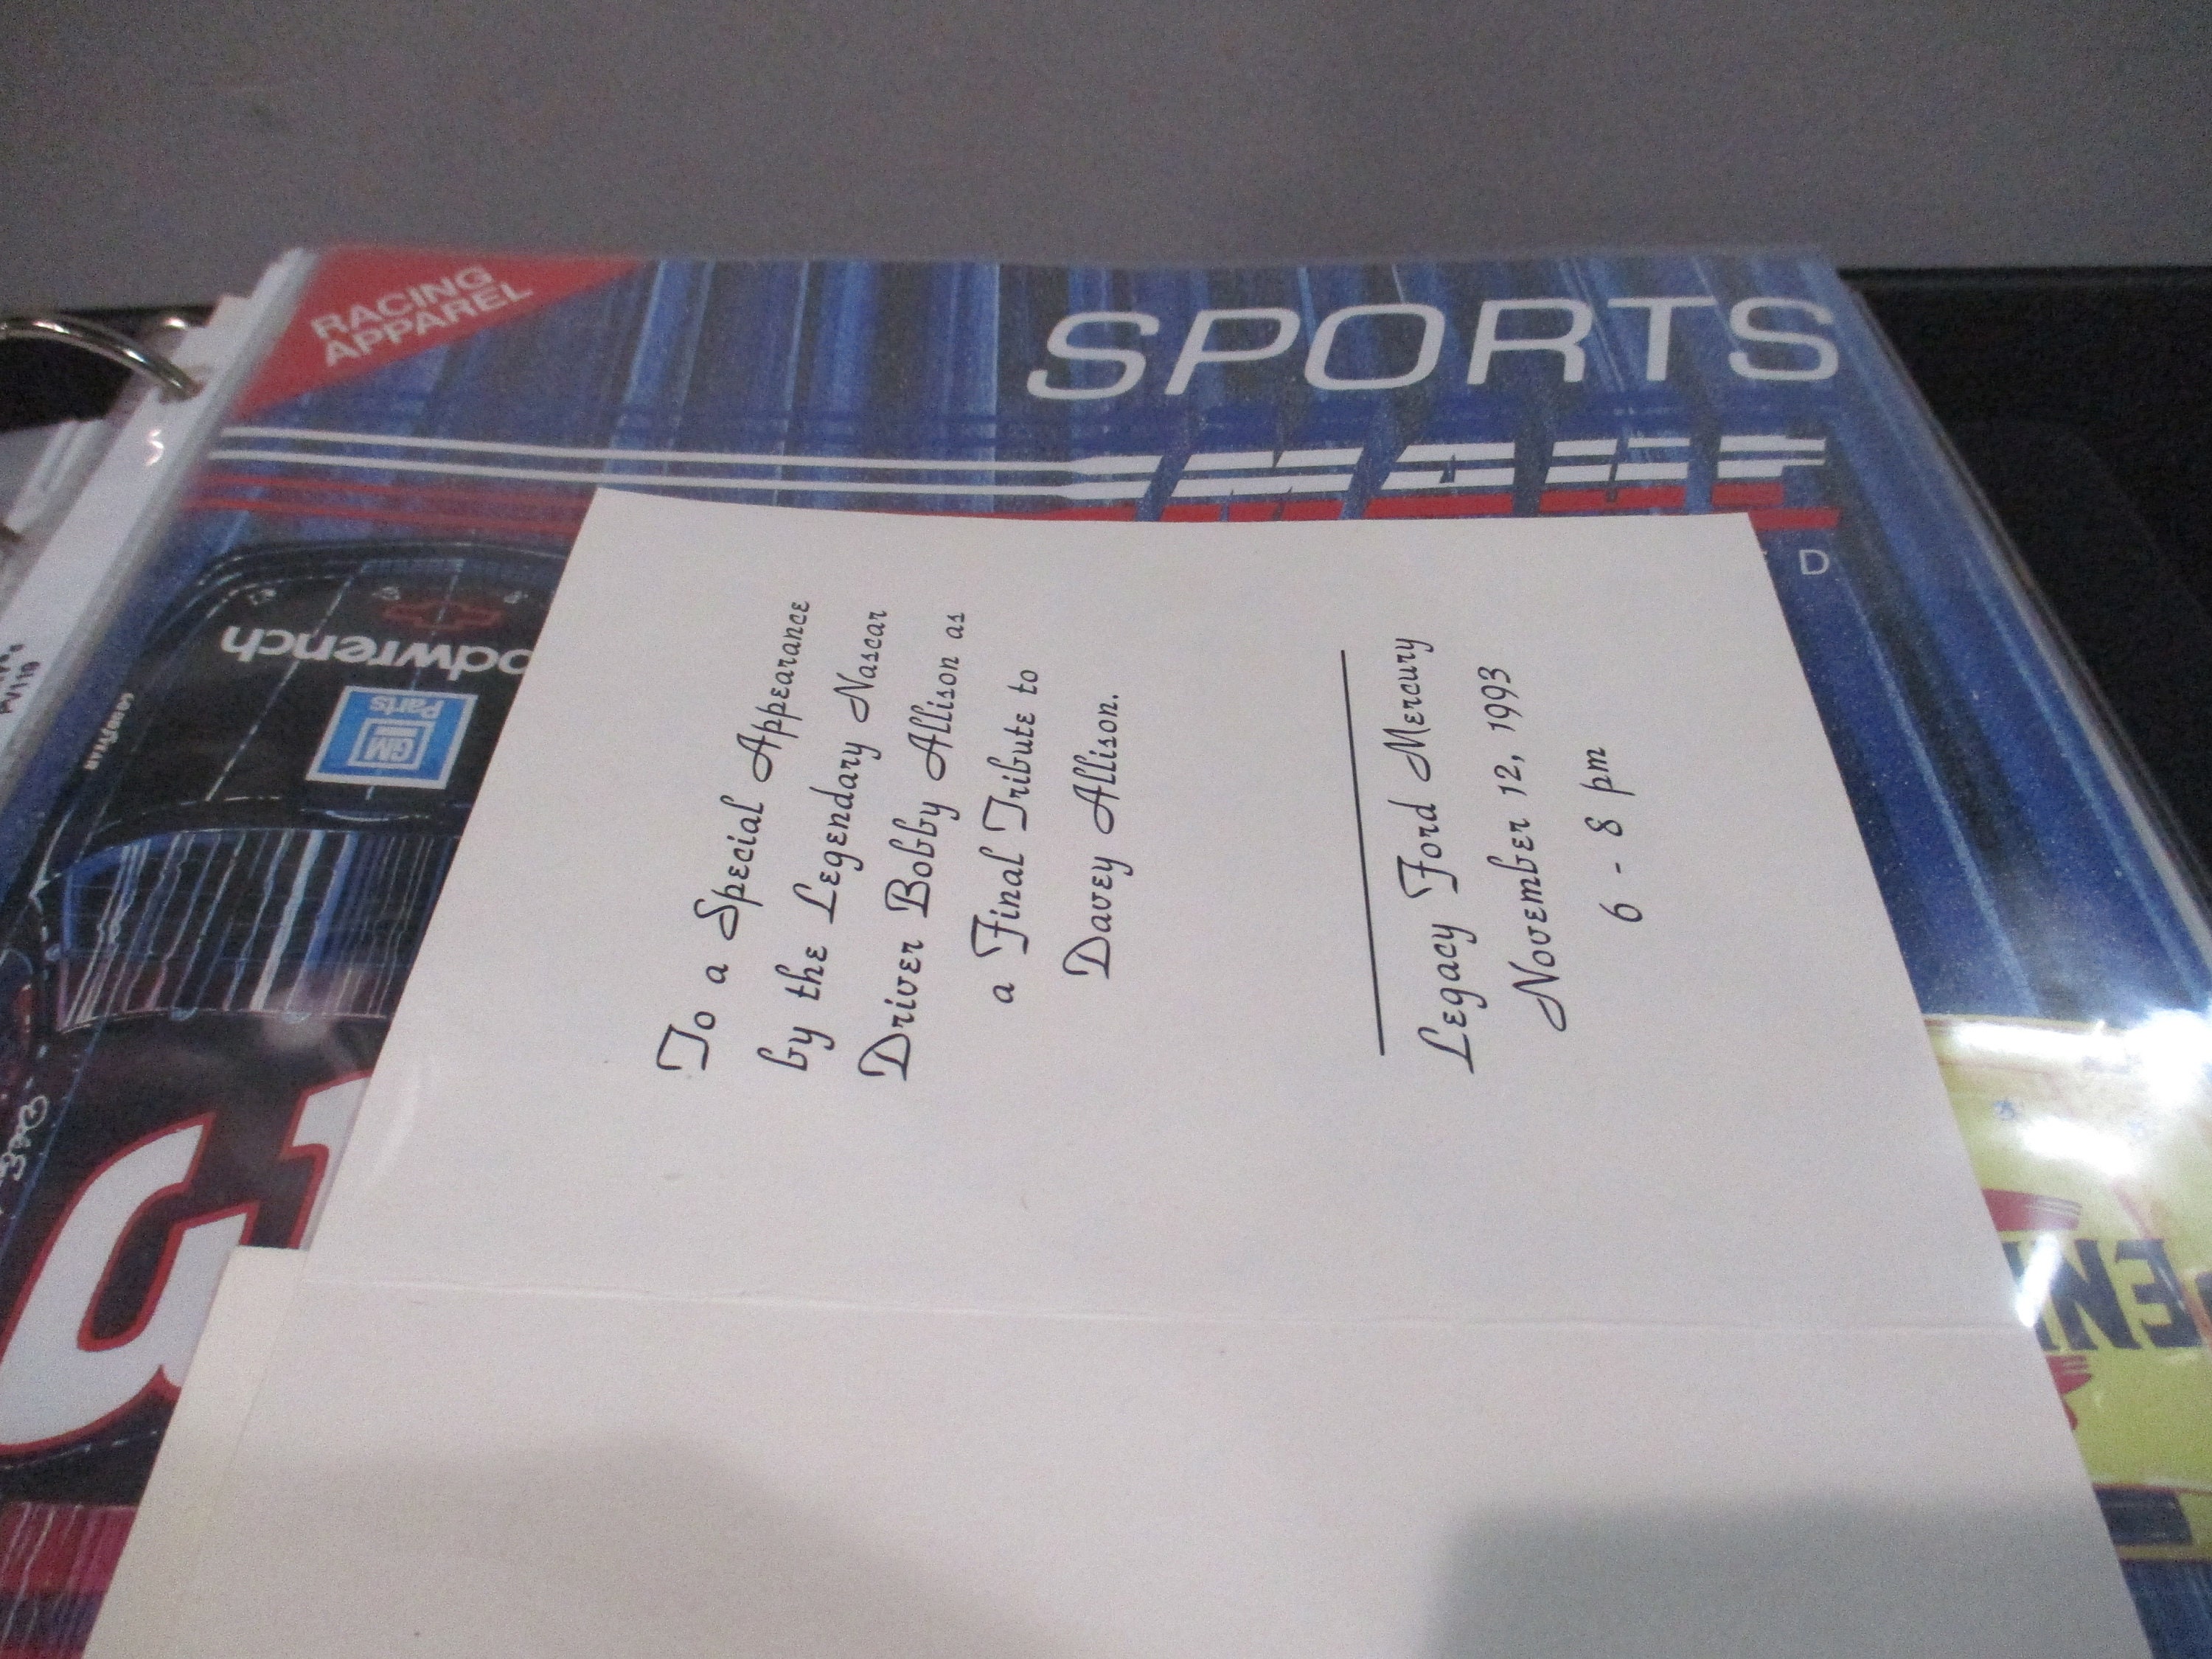 RACING
APPAREL
SPORTS
D
To a Special Appearance
by the Legendary Nascar
Driver Bobby Allison as
a Final Tribute to
Davey Allison.
Legacy Ford Mercury
November 12, 1993
6 - 8 pm
odwrench
GM
Parts
GOODYEAR